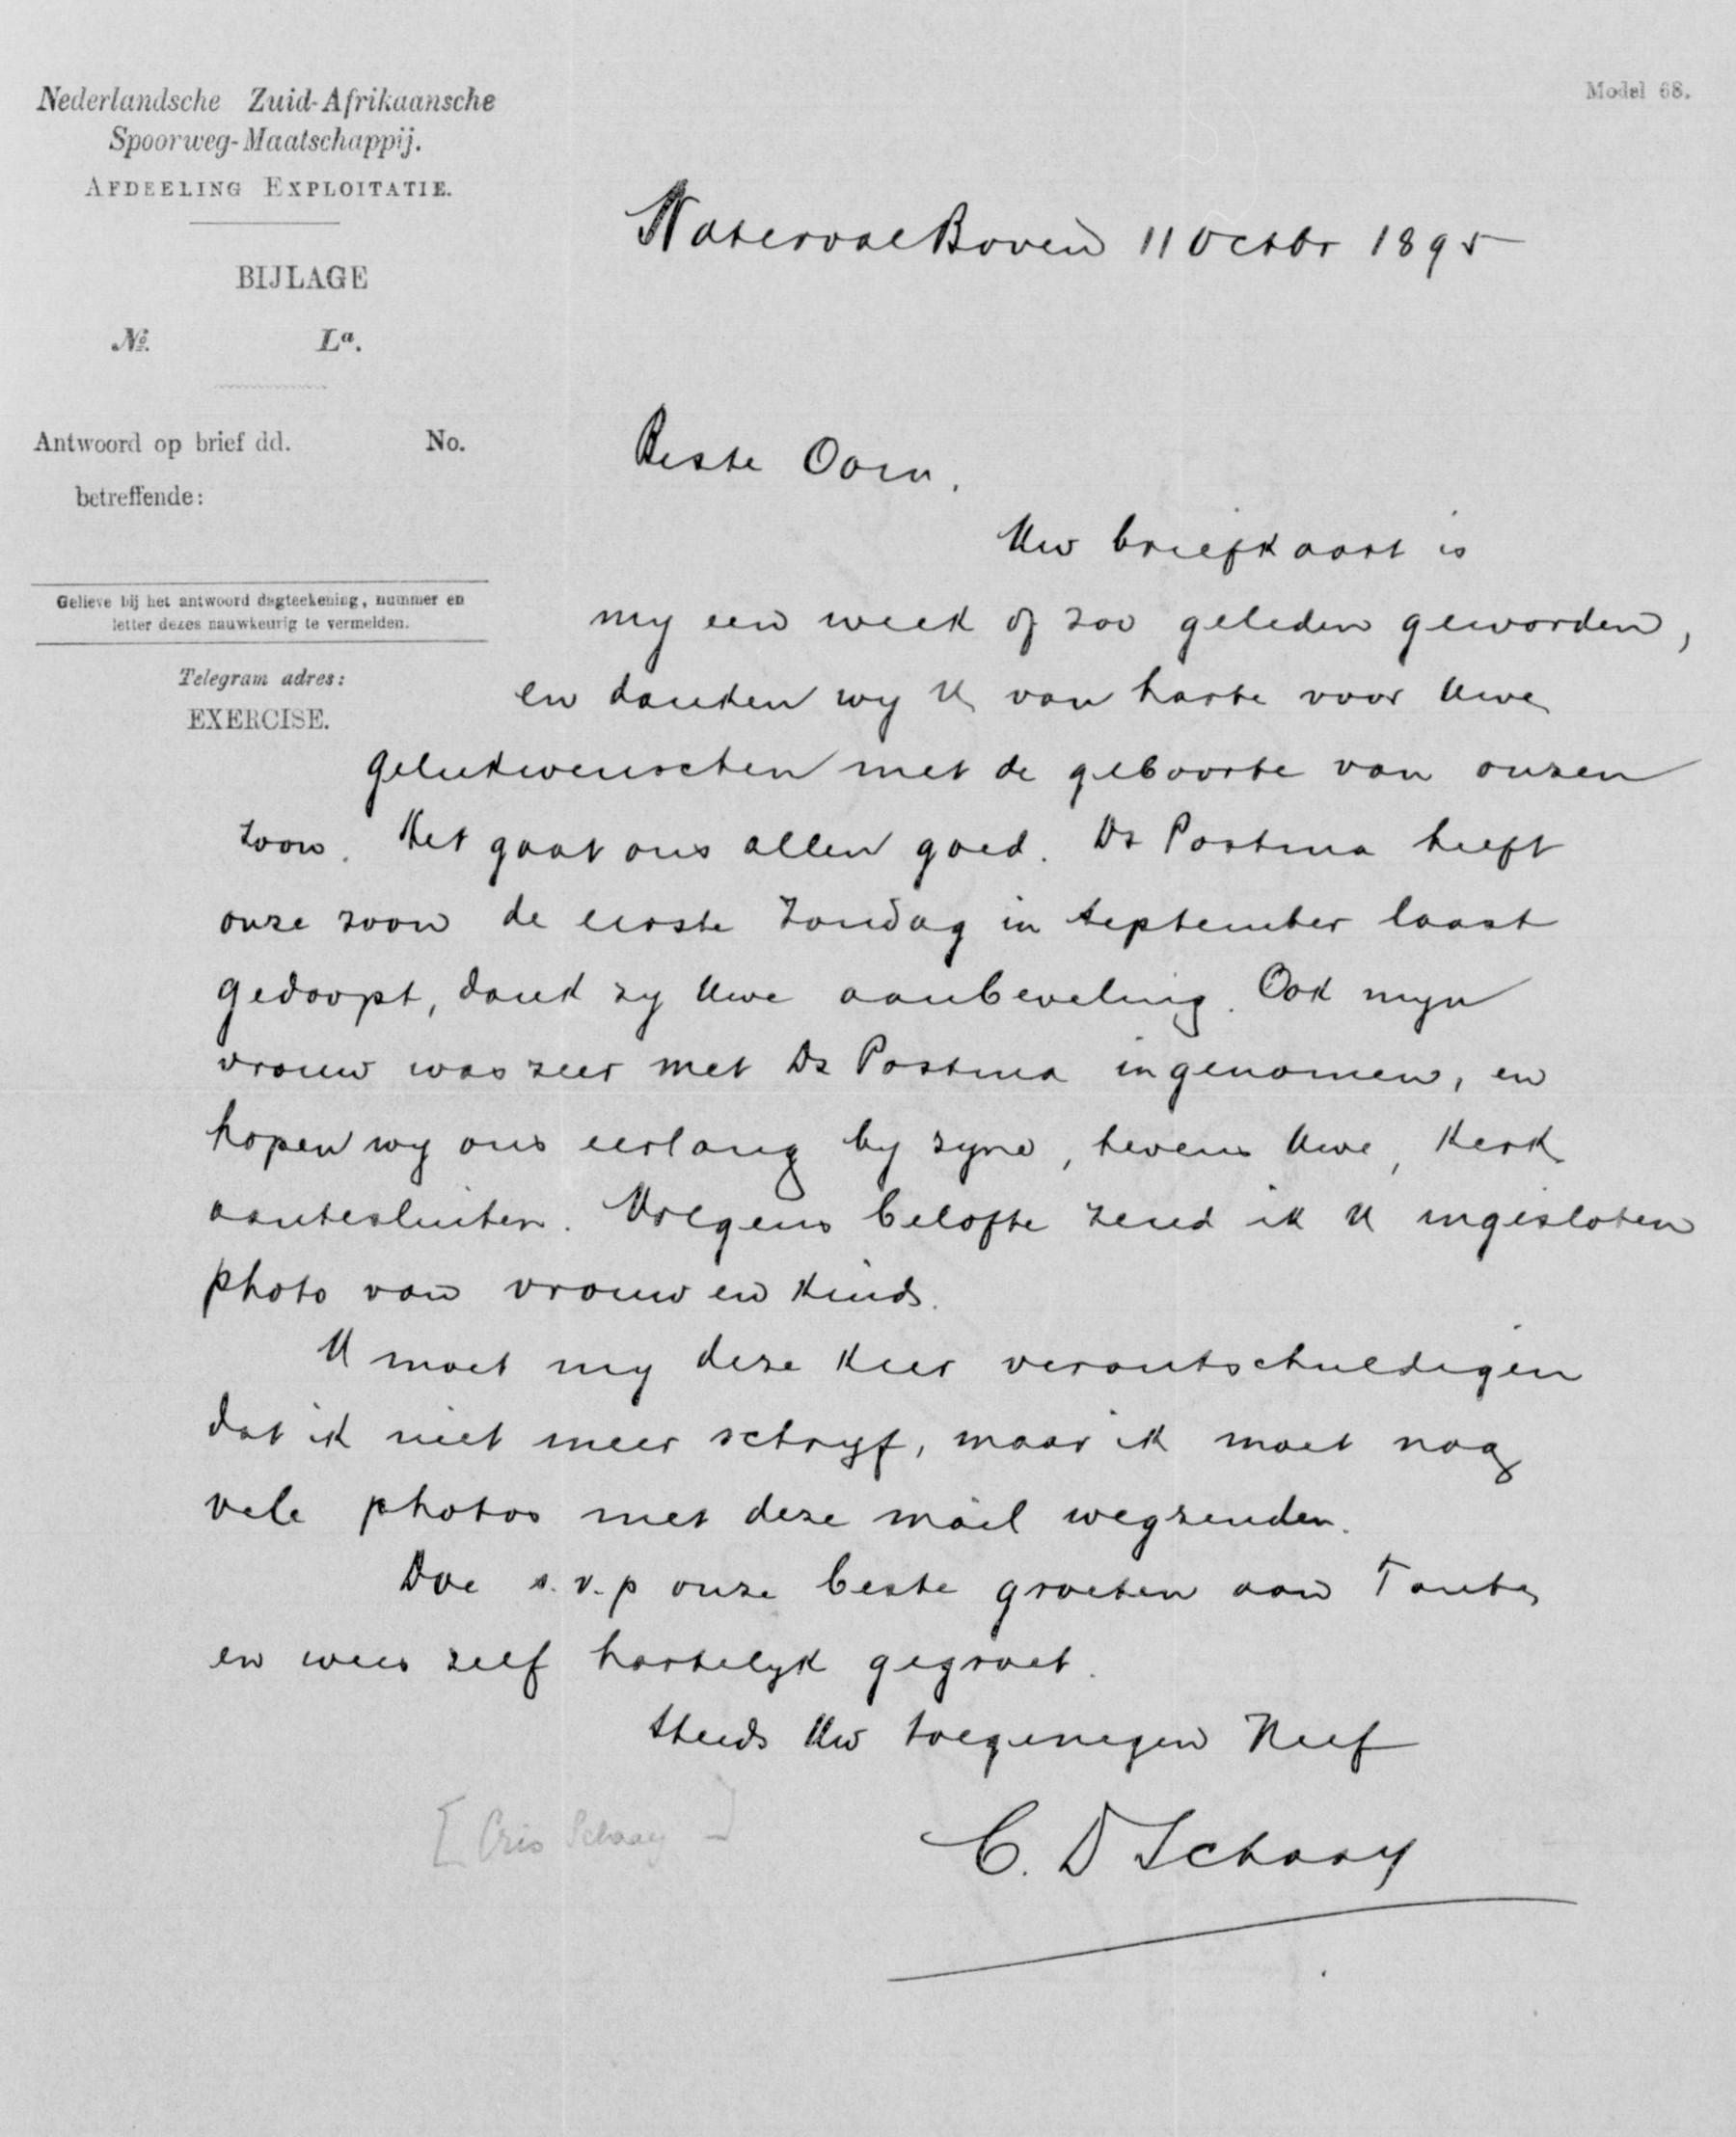 Nederlandsche Zuid-Afrikaansche
Spoorweg-Maatschappij.
AFDEELING EXPLOITATIE.
BIJLAGE
No. La.
Antwoord op brief dd. No.
betreffende:
Gelieve bij het antwoord dagteekening, nummer en
letter dezes nauwkeurig te vermelden.
Telegram adres:
EXERCISE.
Model 68.
Waterval Boven 11 Octbr 1895
Beste Oom.
Uw briefkaart is
my een week of zoo geleden geworden,
en danken wy U van harte voor Uwe
gelukwenschen met de geboorte van onzen
zoon. Het gaat ons allen goed. Ds Postma heeft
onze zoon de eerste Zondag in September laast
gedoopt, dank zy Uwe aanbeveling. Ook myn
vrouw was zeer met Ds Postma ingenomen, en
hopen wy ons eerlang by zyne, tevens Uwe, Kerk
aantesluiten. Volgens belofte zend ik U ingesloten
photo van vrouw en kind.
U moet my deze keer verontschuldigen
dat ik niet meer schryf, maar ik moet nog
vele photos met deze mail wegzenden.
Doe s.v.p onze beste groeten aan Tante
en wees zelf hartelyk gegroet.
Steeds Uw toegenegen Neef
C. D Schaay
[Cris Schaay]